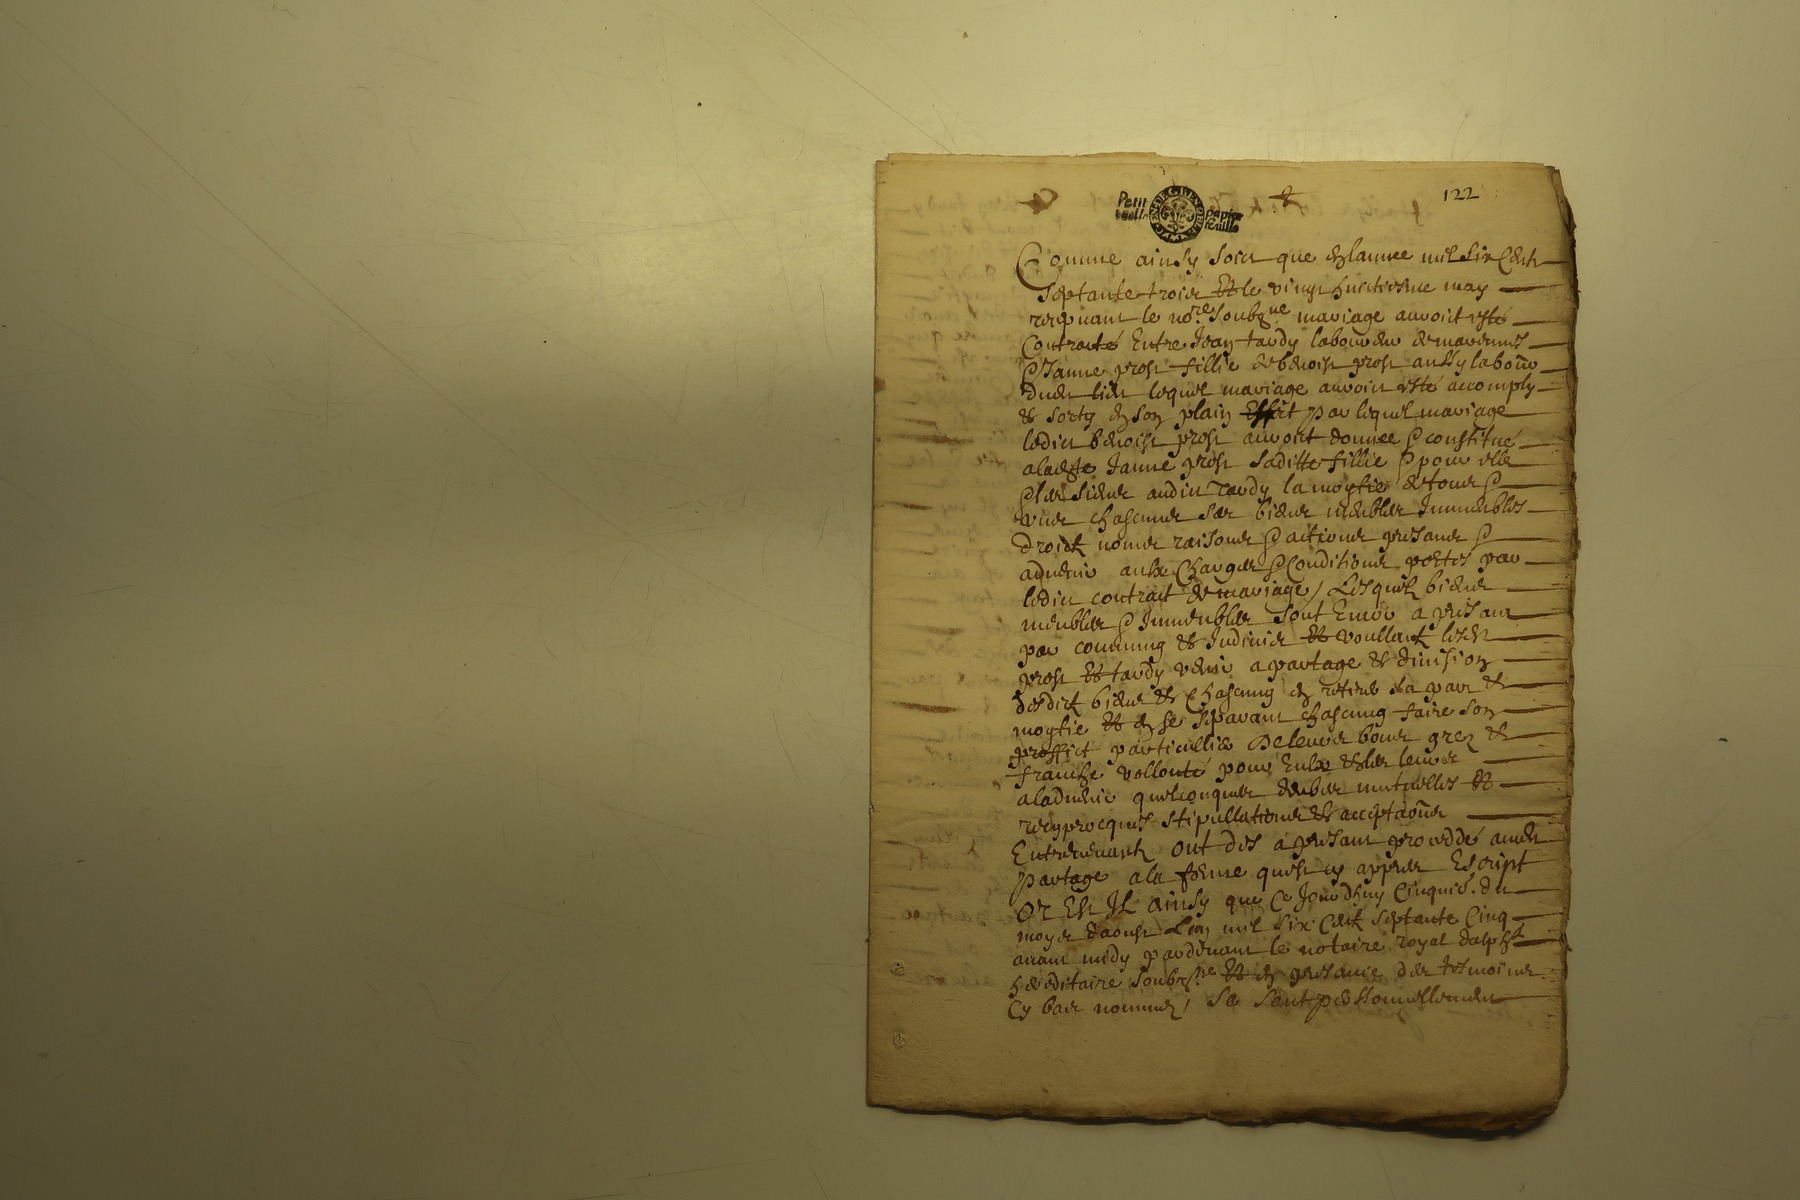 Petit papier
feuille
122
Comme ainsy soict que en lannee mil six centz
septante trois et le vingt huictiesme may
recepvant le no.re soubz.ne mariage auroict esté
Contraité Entre Jean tardy laboureur
& Janne prost fillie de benoist prost aussy labour
dudt lieu lequel mariage auroict esté accomply
et sorty en son plain Effect par lequel mariage
ledict benoist prost auroict donnee & constitué
a ladte Janne prost saditte fillie & pour elle
& les siens audict Tardy la moytie de tous &
uns chascuns ses biens meubles Immeubles
droictz noms raisons & actions presans &
advenir aulx Charges & Conditions portes par
ledict contraict de mariage / Lesquelz biens
meubles & Immeubles sont Encor a presant
par commung et Indivis Et voullant lesdz
prost Et tardy venir a partage et division
desdictz biens et chascung en retirer sa part et
moytie Et en se separant chascung faire son
proffict particullier De leurs bons grez et
franche vollonté pour Eulx et les leurs
a ladvenir quelconques soubz mutuelles Et
recyprocques stipullations et acceptaons
Entrevenantz ont des a presant proceddé audt
partage a la forme quest cy appres Escript
Or Est Il ainsy que Ce Jourdhuy Cinquie. du
moys daoust Lan mil six centz septante Cinq
avant midy pardevant le notaire royal dalph.l
hereditaire soubz.ne Et en presance des tesmoins
Cy bas nommez / se sont personnellement